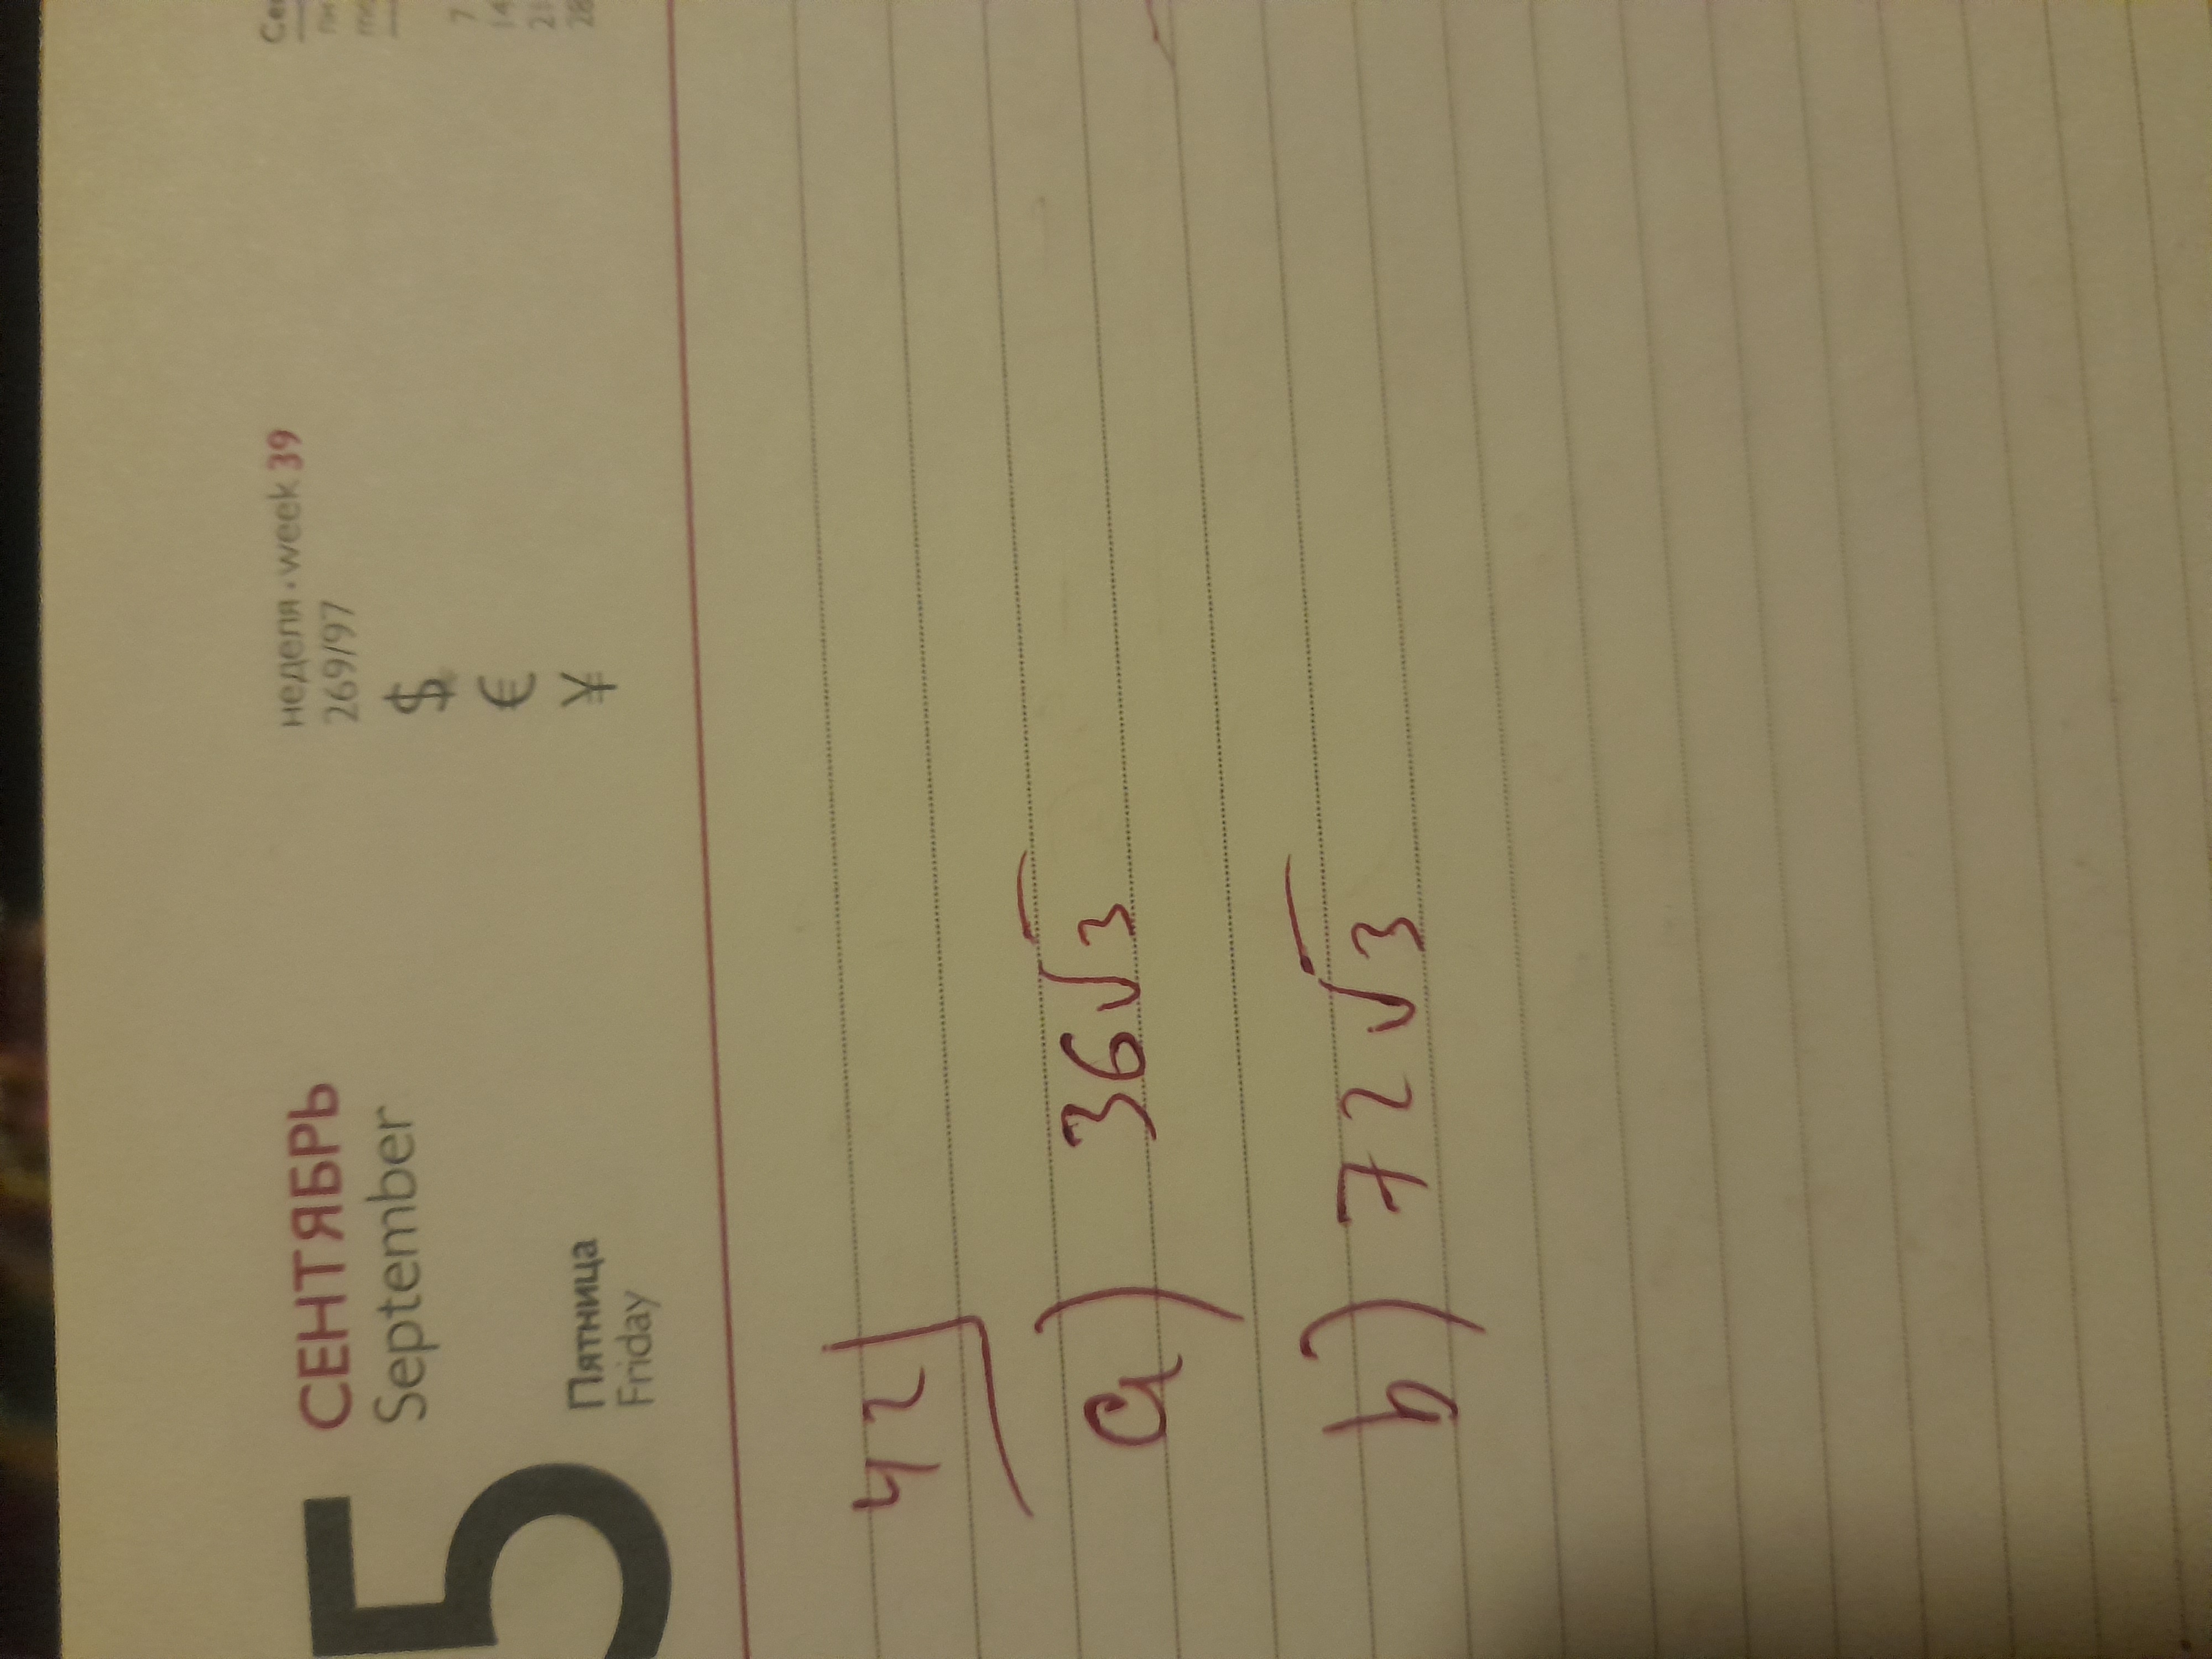 5 СЕНТЯБРЬ
September
Пятница
Friday
неделя · week 39
269/97
$
€
¥
7
14
21
28
42
a) 36√3
b) 72√3